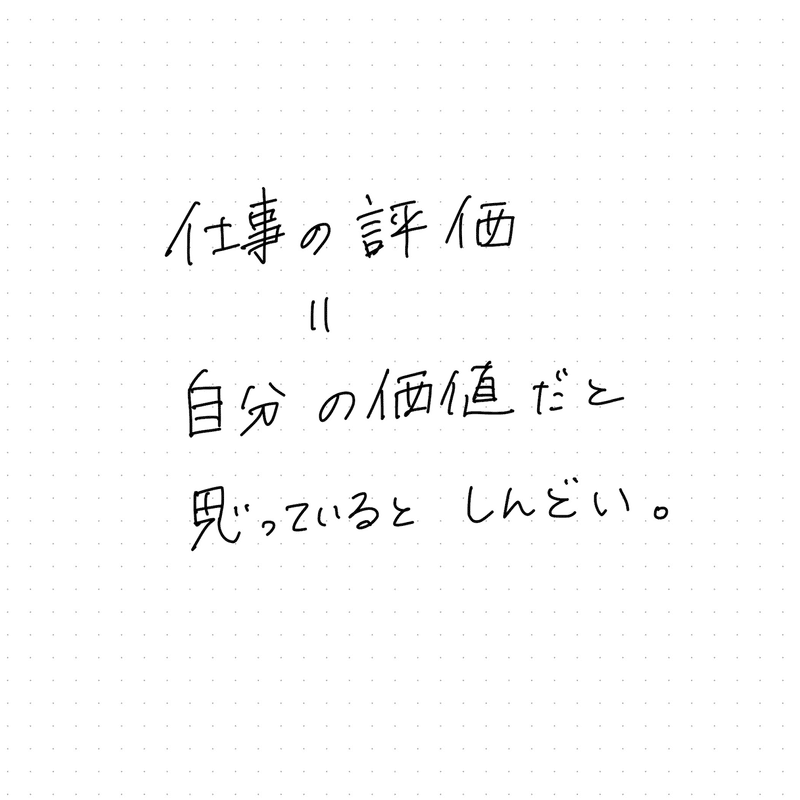 仕事の評価
＝
自分の価値だと
思っているとしんどい。